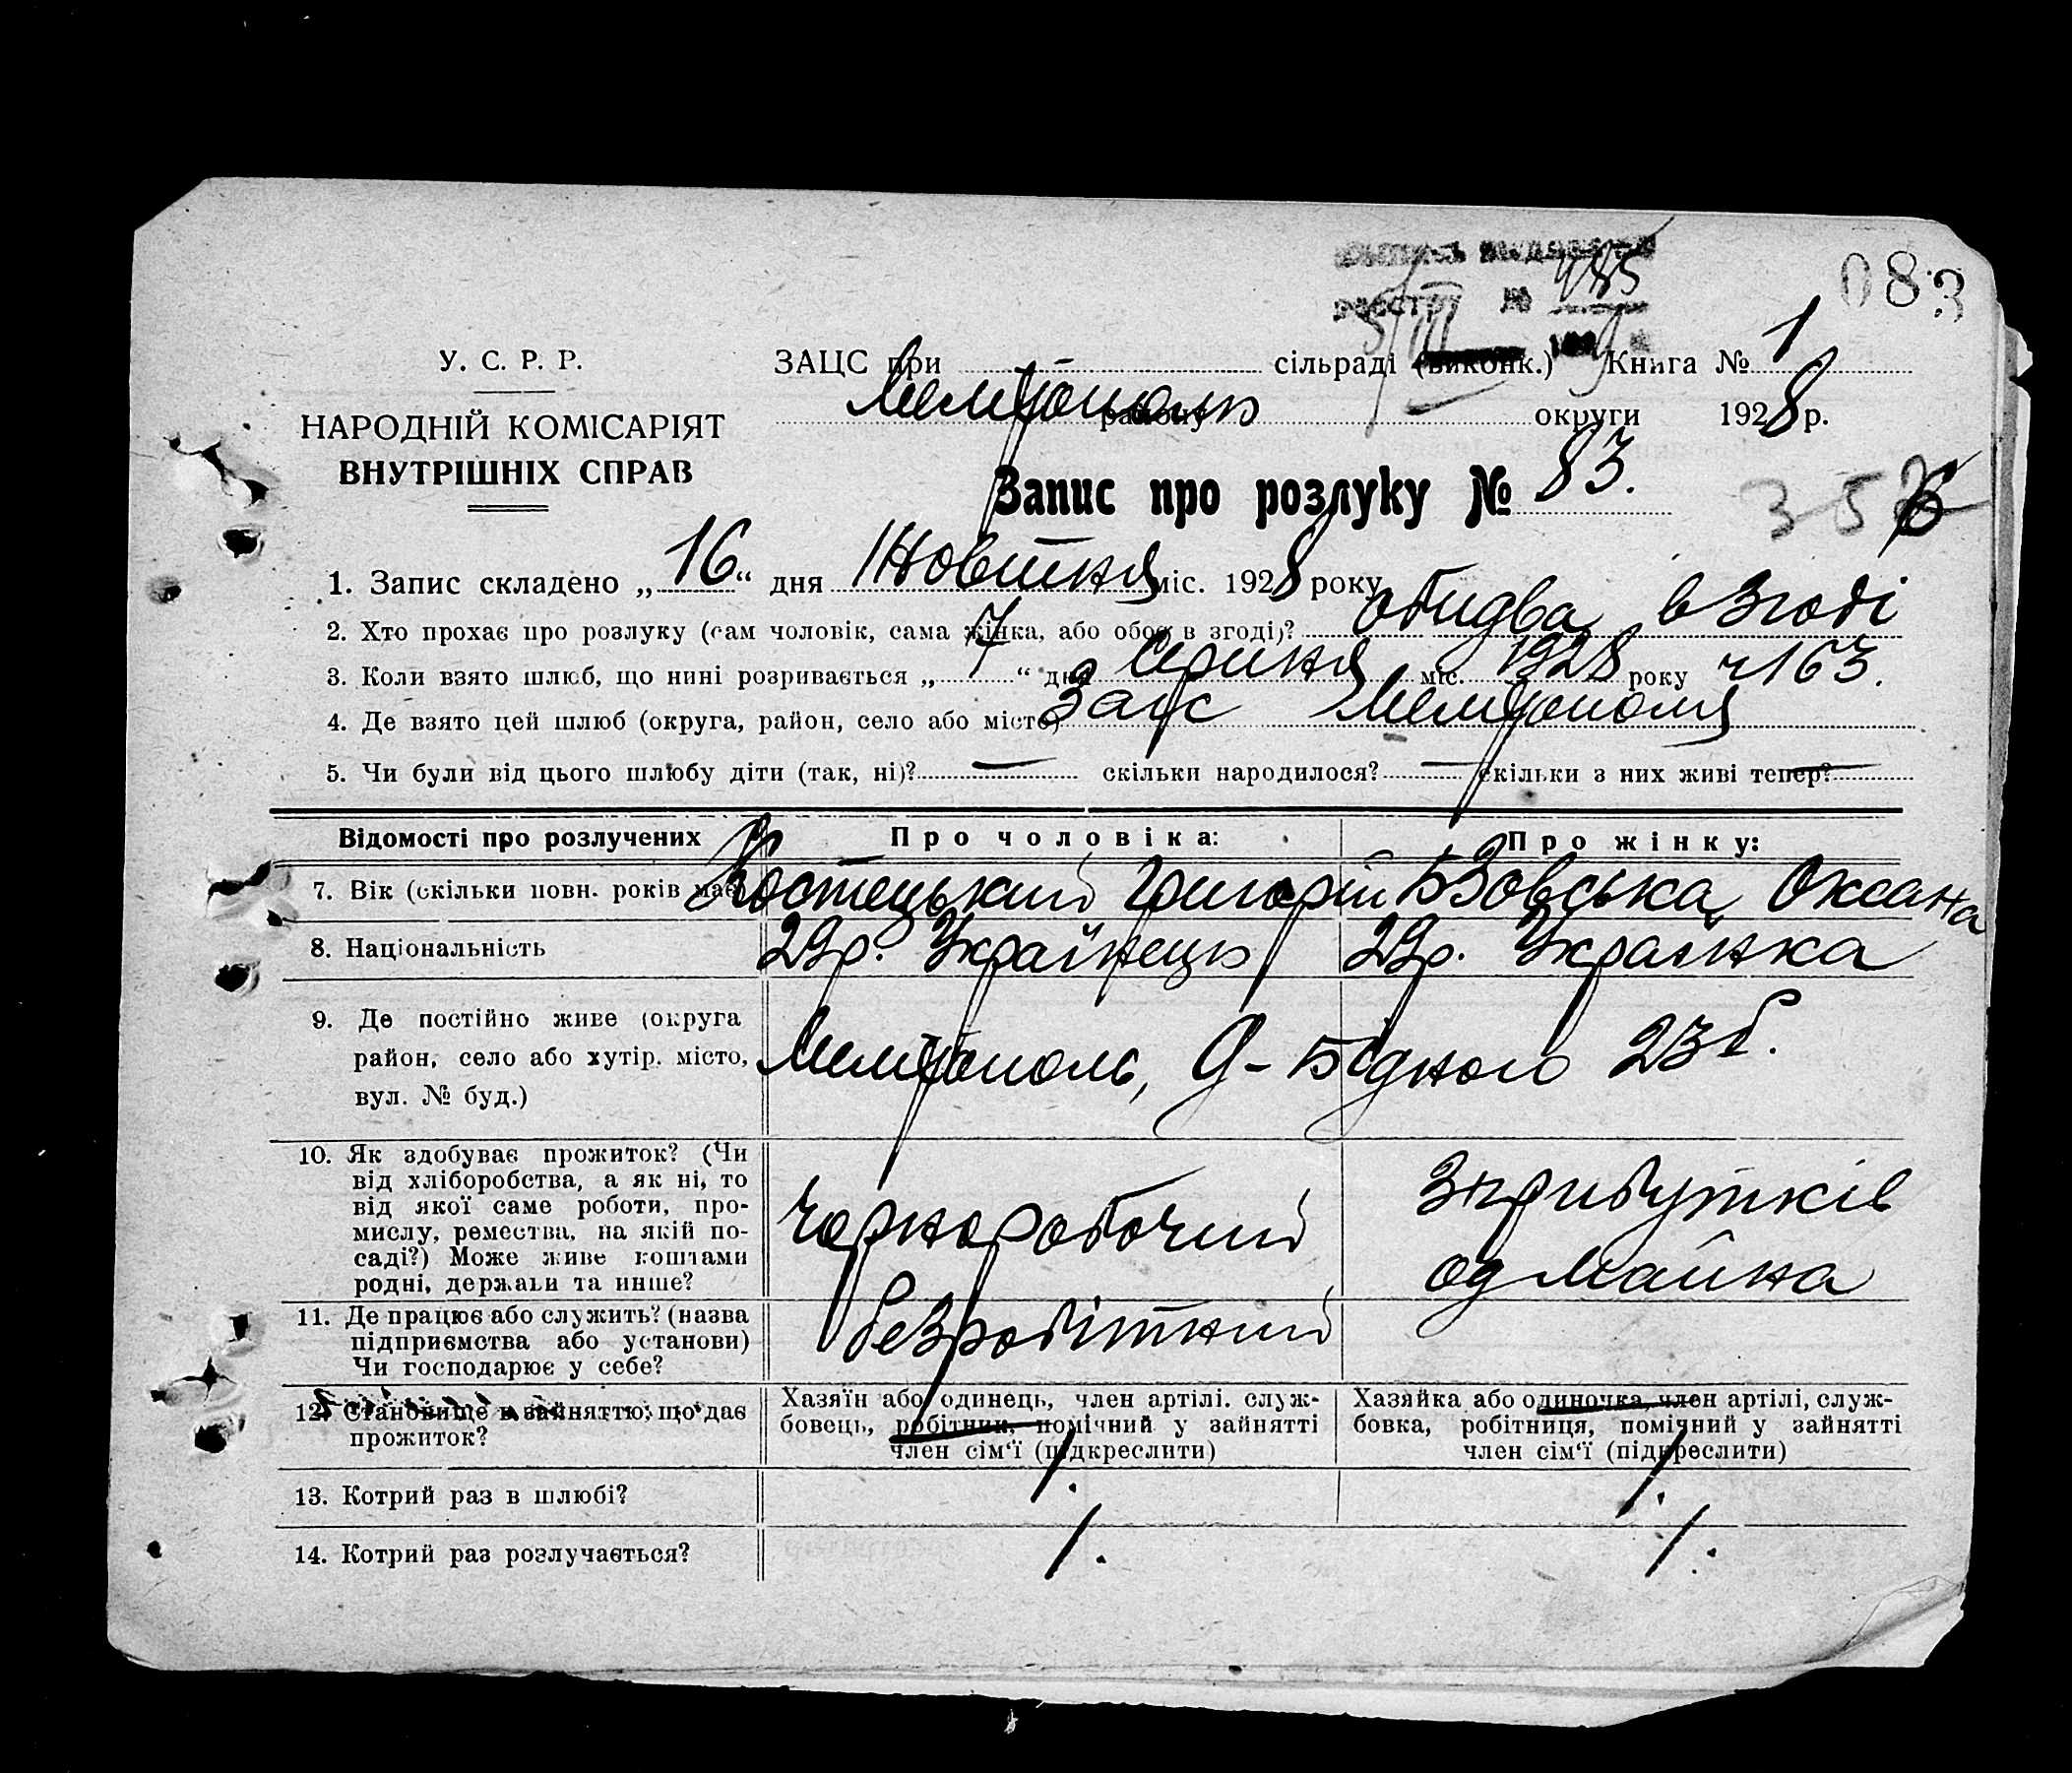 083
реєстру № 485
У. С. Р. Р.
НАРОДНІЙ КОМІСАРІЯТ
ВНУТРІШНІХ СПРАВ
ЗАЦС при сільраді (виконк.) Книга № 1
району округи 1928 р.
Запис про розлуку № 83.
1. Запис складено „16“ дня Жовтня міс. 1928 року
2. Хто прохає про розлуку (сам чоловік, сама жінка, або обоє в згоді)? обидва в згоді
3. Коли взято шлюб, що нині розривається „7“ дня Серпня міс. 1928 року ч 163.
4. Де взято цей шлюб (округа, район, село або місто) Загс Мелітополя
5. Чи були від цього шлюбу діти (так, ні)? — скільки народилося? — скільки з них живі тепер? —
Відомості про розлучених Про чоловіка: Про жінку:
7. Вік (скільки повн. років має) Костецький Григорій Бзовська Оксана
8. Національність 29р. Українець 29р. Українка
9. Де постійно живе (округа
район, село або хутір. місто,
вул. № буд.)
Мелітополь, Д-Бідного 23б.
10. Як здобуває прожиток? (Чи
від хліборобства, а як ні, то
від якої саме роботи, про-
мислу, ремества, на якій по-
саді?) Може живе коштами
родні, держави та инше?
Чорноробочий
з прибутків
од майна
11. Де працює або служить? (назва
підприємства або установи)
Чи господарює у себе?
безробітний
12. Становище в зайняттю, що дає
прожиток?
Хазяїн або одинець, член артілі. служ-
бовець, робітник, помічний у зайнятті
член сім'ї (підкреслити)
Хазяйка або одиночка, член артілі, служ-
бовка, робітниця, помічний у зайнятті
член сім'ї (підкреслити)
13. Котрий раз в шлюбі? 1. 1.
14. Котрий раз розлучається? 1. 1.